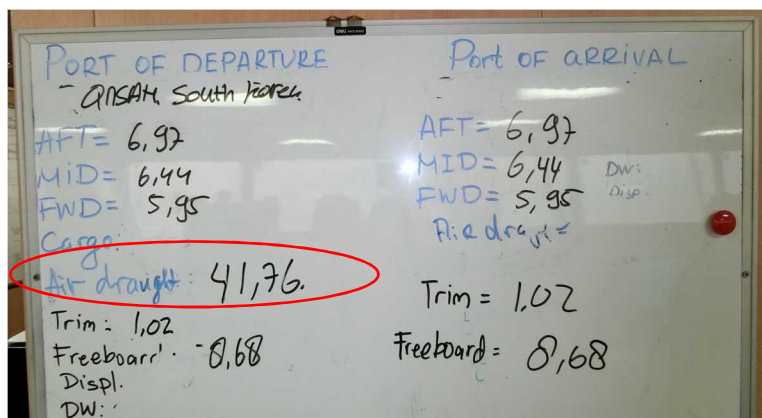 PORT OF DEPARTURE
- ANSAN. South Korea
AFT= 6,97
MiD= 6,44
FWD= 5,95
Cargo:
Air draught: 41,76.
Trim: 1,02
Freeboard: 8,68
Displ.
DW:
Port OF aRRiVAL
-
AFT= 6,97
MID= 6,44
FWD= 5,95
DW:
Disp.
Air draught=
Trim = 1,02
Freeboard= 8,68